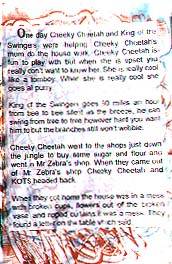 One day Cheeky Cheetah and King of the
Swingers were helping Cheeky Cheetah's
mum do the house work. Cheeky Cheetah is
fun to play with but when she is upset you
really don't want to know her. She is really cool
like a tomboy. When she is really cool she
goes all purry.
King of the Swingers goes 50 miles an hour
from tree to tree silent as the breeze, he can
swing from tree to tree however hard you want
him to but the branches still won't wobble.
Cheeky Cheetah went to the shops just down
the jungle to buy some sugar and flour and
went in Mr Zebra's shop. When they came out
of Mr Zebra's shop Cheeky Cheetah and
KOTS headed back.
When they got home the house was in a mess
with broken cups, flowers out of the broken
vase and ripped curtains it was a mess. They
found a letter on the table which said